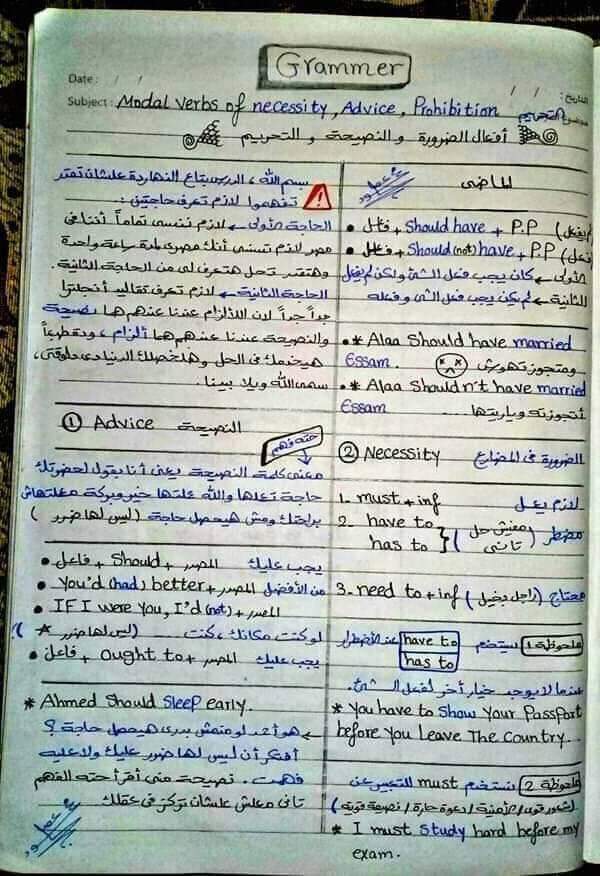 Grammer
Date : / /
التاريخ : / /
Subject : Modal verbs of necessity, Advice, Prohibition
أفعال الضرورة والنصيحة والتحريم
بسم الله ، الدرس بتاع النهاردة علشان تقدر
تفهموا لازم تعرف حاجتين :
الحاجة الأولى ← لازم ننسى تماماً أننا فى
مصر لازم تنسى أنك مصرى لمدة ساعة واحدة
وهتقدر تحل هتعرف لى من الحاجة الثانية.
الحاجة الثانية ← لازم تعرف تقاليد أنجلترا
جداً جداً لان الالزام عندنا عندهم ها نصيحة
والنصيحة عندنا عندهم هما ألزام ، ودا طبعاً
هيخدمك فى الحل وهلخصلك الدنيا دى دلوقتى ،
سمى الله ويلا بينا .
① Advice النصيحة
حته فهم
معنى كلمة النصيحة يعنى أنا بقول لحضرتك
حاجة تعملها والله عملتها خير وبركة معملتهاش
براحتك ومش هيحصل حاجة (ليس لها ضرر)
• يجب عليك المصدر + Should + فاعل
• You'd (had) better + المصدر من الأفضل
• IF I were You, I'd (not) + المصدر
لو كنت مكانك ، كنت ...... (ليس لها ضرر)
• يجب عليك المصدر + ought to + فاعل
* Ahmed Should Sleep early.
← هو أحمد لو منمش بدرى هيحصل حاجة ؟
أفتكر أن ليس لها ضرر عليك ولا عليه
فهمت . نصيحة منى أقرأ حته الفهم
تانى معلش علشان تركز فى عقلك
الماضى
• فاعل + Should have + P.P (لم يفعل)
• فاعل + Should (not) have + P.P (فعل)
الأولى ← كان يجب فعل الشئ ولكن لم يفعل
الثانية ← لم يكن يجب فعل الشئ وفعله
•* Alaa Should have married
Essam. ومتجوزتهوش
•* Alaa Shouldn't have married
Essam أتجوزته وياريتها .....
② Necessity الضرورة فى المضارع
1. must + inf لازم يعمل
2. have to
has to } (مفيش حل تانى) مضطر
3. need to + inf (راجل بخيل) محتاج
ملحوظة 1 يستخدم have to عند الأضطرار
has to
عندما لا يوجد خيار أخر لفعل الشئ.
* You have to Show Your Passport
before You Leave The Country.
ملحوظة 2 يستخدم must للتعبير عن
(شعور قوى / الأمنية / دعوة حارة / نصيحة قوية)
* I must Study hard before my
exam.